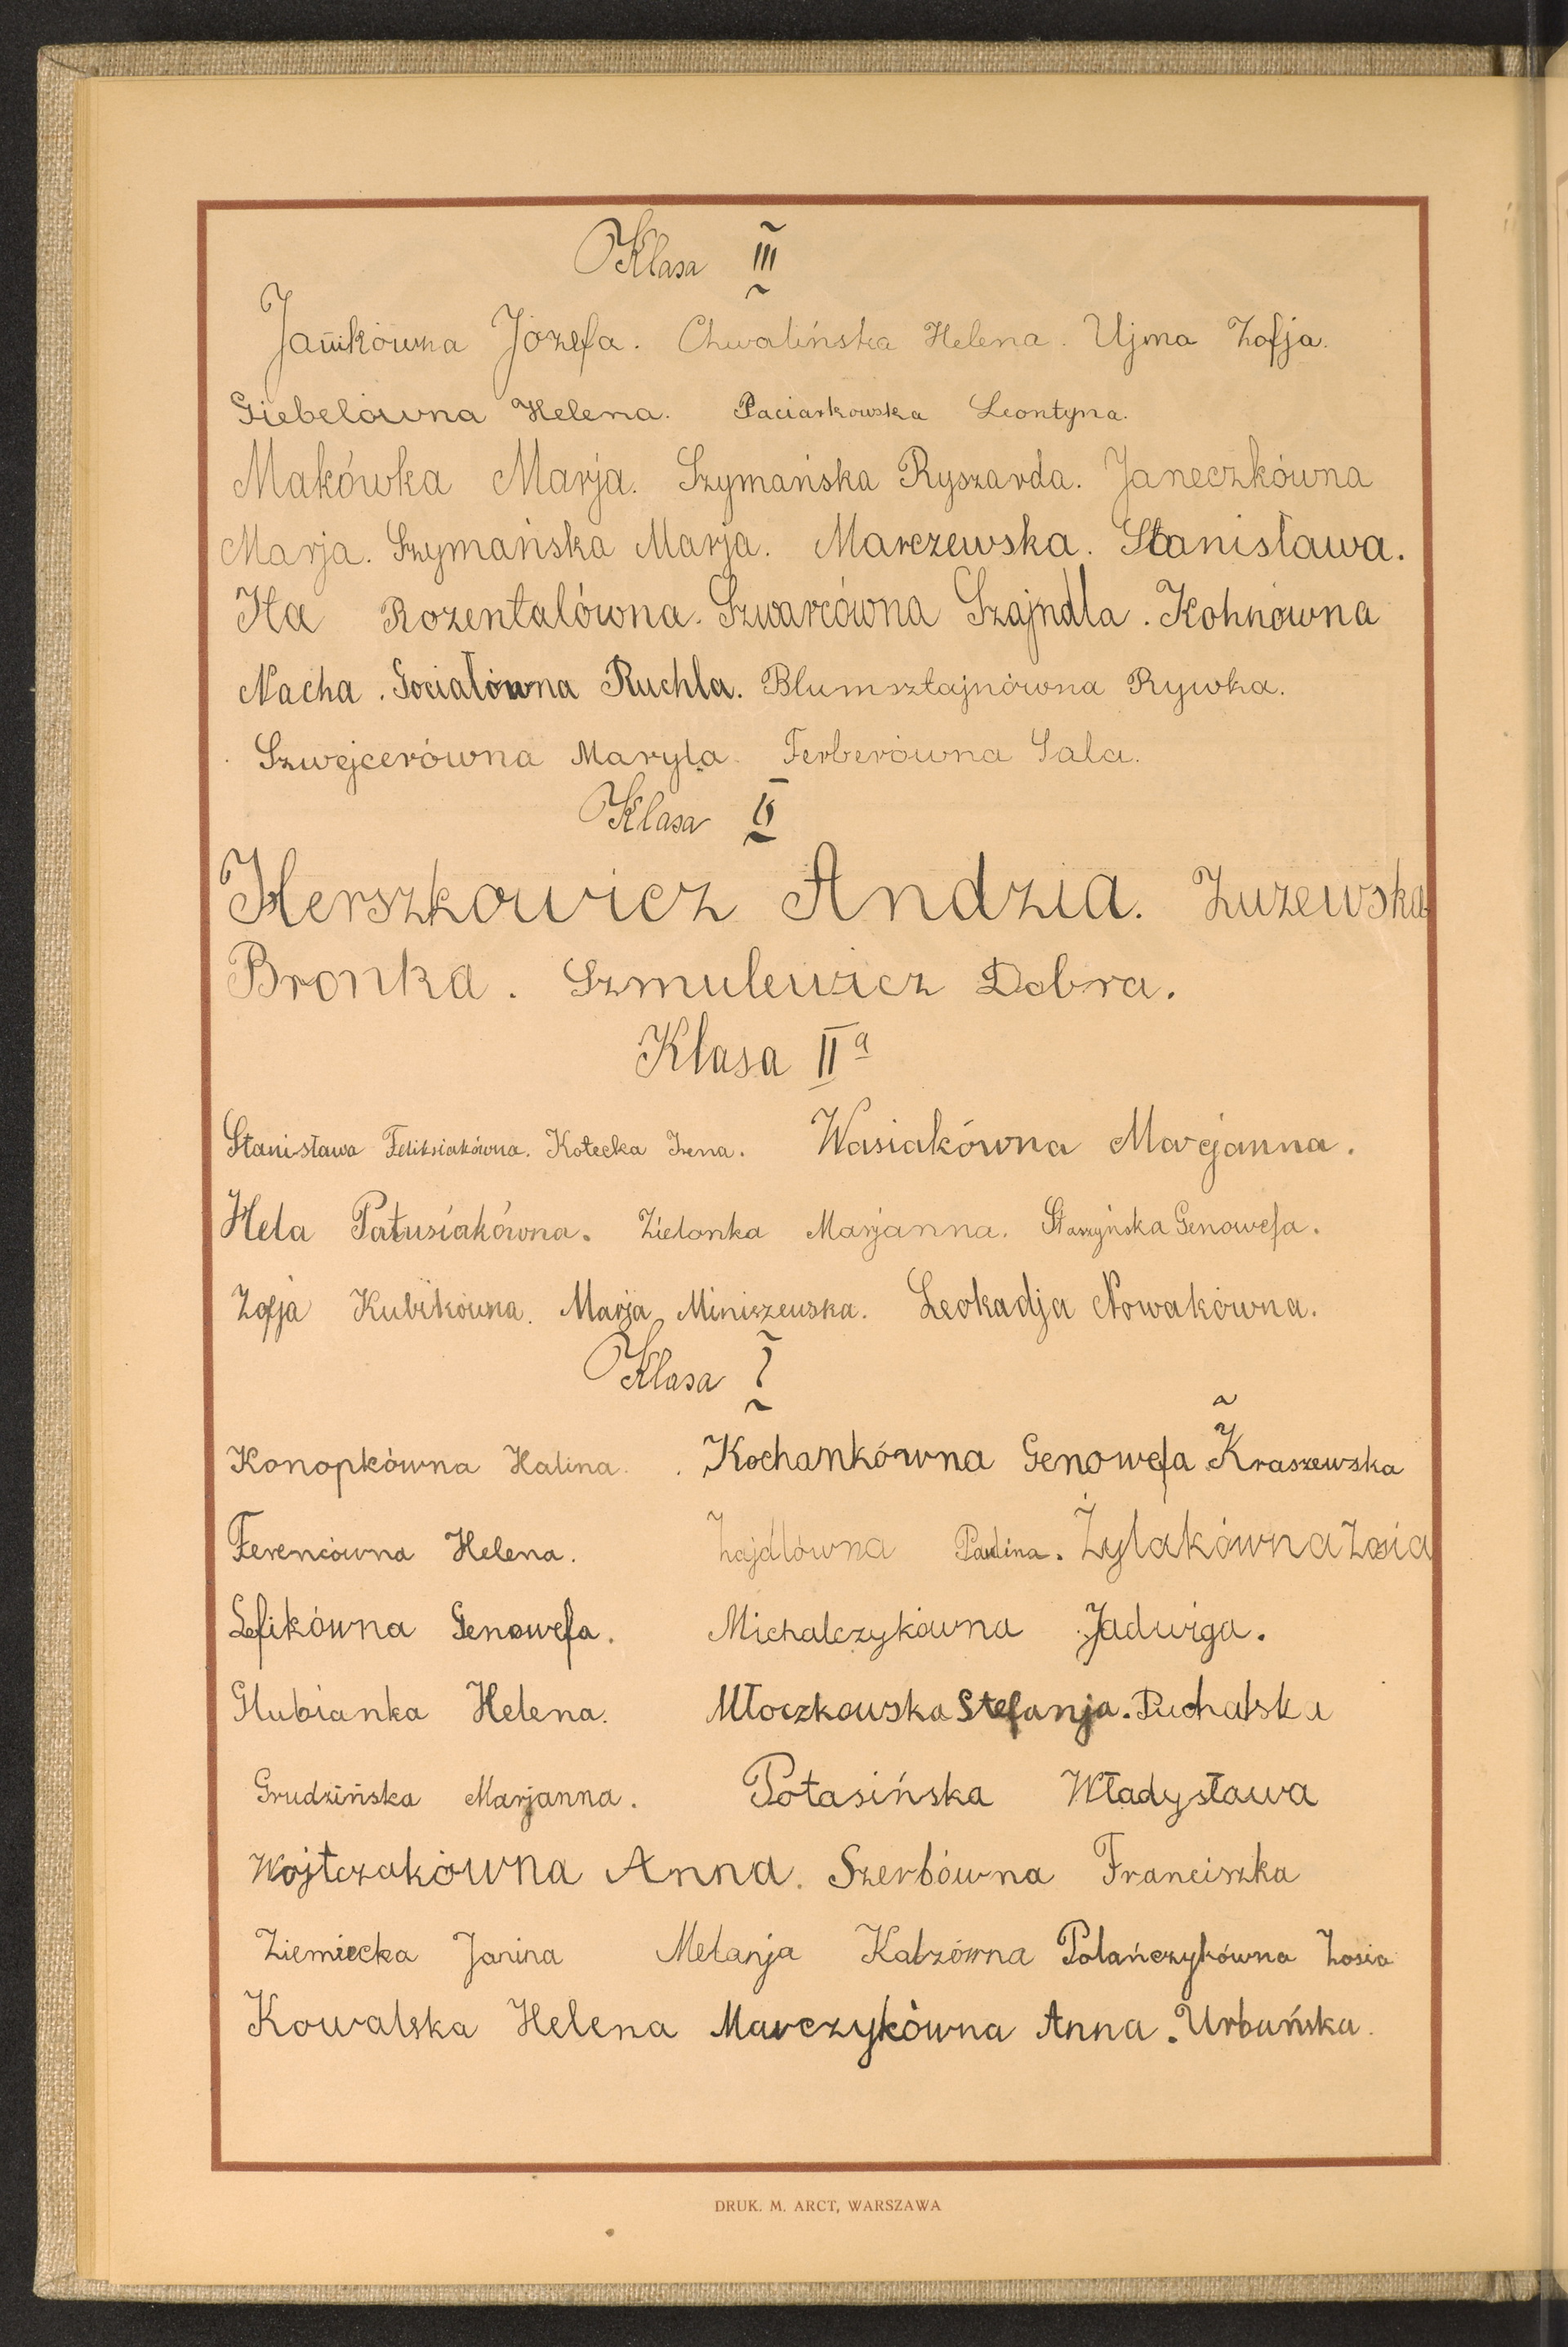 Klasa III
Janikówna Józefa. Chwalińska Helena. Ujma Zofja.
Giebelówna Helena. Paciarkowska Leontyna.
Makówka Marja. Szymańska Ryszarda. Janeczkówna
Marja. Szymańska Marja. Marczewska. Stanisława.
Ita Rozentalówna. Szwarcówna Szajndla. Kohnówna
Nacha. Sociałówna Ruchla. Blumsztajnówna Rywka.
Szwejcerówna Maryla Ferberówna Sala.
Klasa II
Herszkowicz Andzia. Zuzewska
Bronka. Szmulewicz Dobra.
Klasa IIa
Stanisława Feliksiakówna. Kotecka Irena. Wasiakówna Marjanna.
Hela Patusiakówna. Zielonka Marjanna. Staszyńska Genowefa.
Zofja Kubikówna. Marja Miniszewska. Leokadja Nowakówna.
Klasa I
Konopkówna Halina. Kochankówna Genowefa Kraszewska
Ferencówna Helena. Zajdlówna Paulina. Żylakówna Zosia
Lefikówna Genowefa. Michalczykówna Jadwiga.
Glubianka Helena. Młoczkowska Stefanja. Puchalska
Grudzińska Marjanna. Potasińska Władysława
Wojtczakówna Anna. Szerbówna Franciszka
Ziemiecka Janina Melanja Kalzówna Polańczykówna Zosia
Kowalska Helena Marczykówna Anna. Urbańska.
DRUK. M. ARCT, WARSZAWA